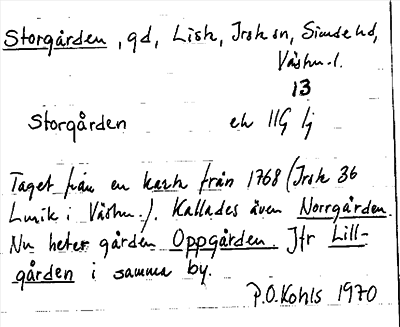 Storgården, gd, Lisk, Irsk sn, Siende hd,
Västm. l.
13
Storgården ek IIG 1j
Taget från en karta från 1768 (Irsk 36
Lmk i Västm.). Kallades även Norrgården.
Nu heter gården Oppgården. Jfr Lill-
gården i samma by.
P.O. Kohls 1970